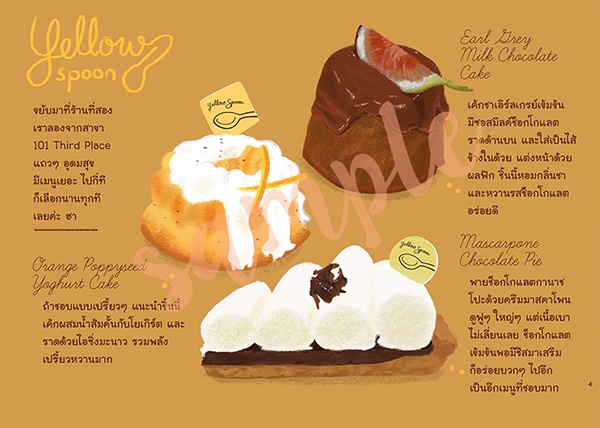 Yellow
spoon
ขยับมาที่ร้านที่สอง
เราลองจากสาขา
101 Third Place
แถวๆ อุดมสุข
มีเมนูเยอะ ไปกี่ที
ก็เลือกนานทุกที
เลยค่ะ ฮา
Orange Poppyseed
Yoghurt Cake
ถ้าชอบแบบเปรี้ยวๆ แนะนำชิ้นนี้
เค้กผสมน้ำส้มคั้นกับโยเกิร์ต และ
ราดด้วยไอซิ่งมะนาว รวมพลัง
เปรี้ยวหวานมาก
Yellow Spoon
Earl Grey
Milk Chocolate
Cake
เค้กชาเอิร์ลเกรย์เข้มข้น
มีซอสมิลค์ช็อกโกแลต
ราดด้านบน และใส่เป็นไส้
ข้างในด้วย แต่งหน้าด้วย
ผลฟิก ชิ้นนี้หอมกลิ่นชา
และหวานรสช็อกโกแลต
อร่อยดี
Yellow Spoon
Mascarpone
Chocolate Pie
พายช็อกโกแลตกานาช
โปะด้วยครีมมาสคาโพน
ดูฟูๆ ใหญ่ๆ แต่เนื้อเบา
ไม่เลี่ยนเลย ช็อกโกแลต
เข้มข้นพอมีชีสมาเสริม
ก็อร่อยบวกๆ ไปอีก
เป็นอีกเมนูที่ชอบมาก
sample
4